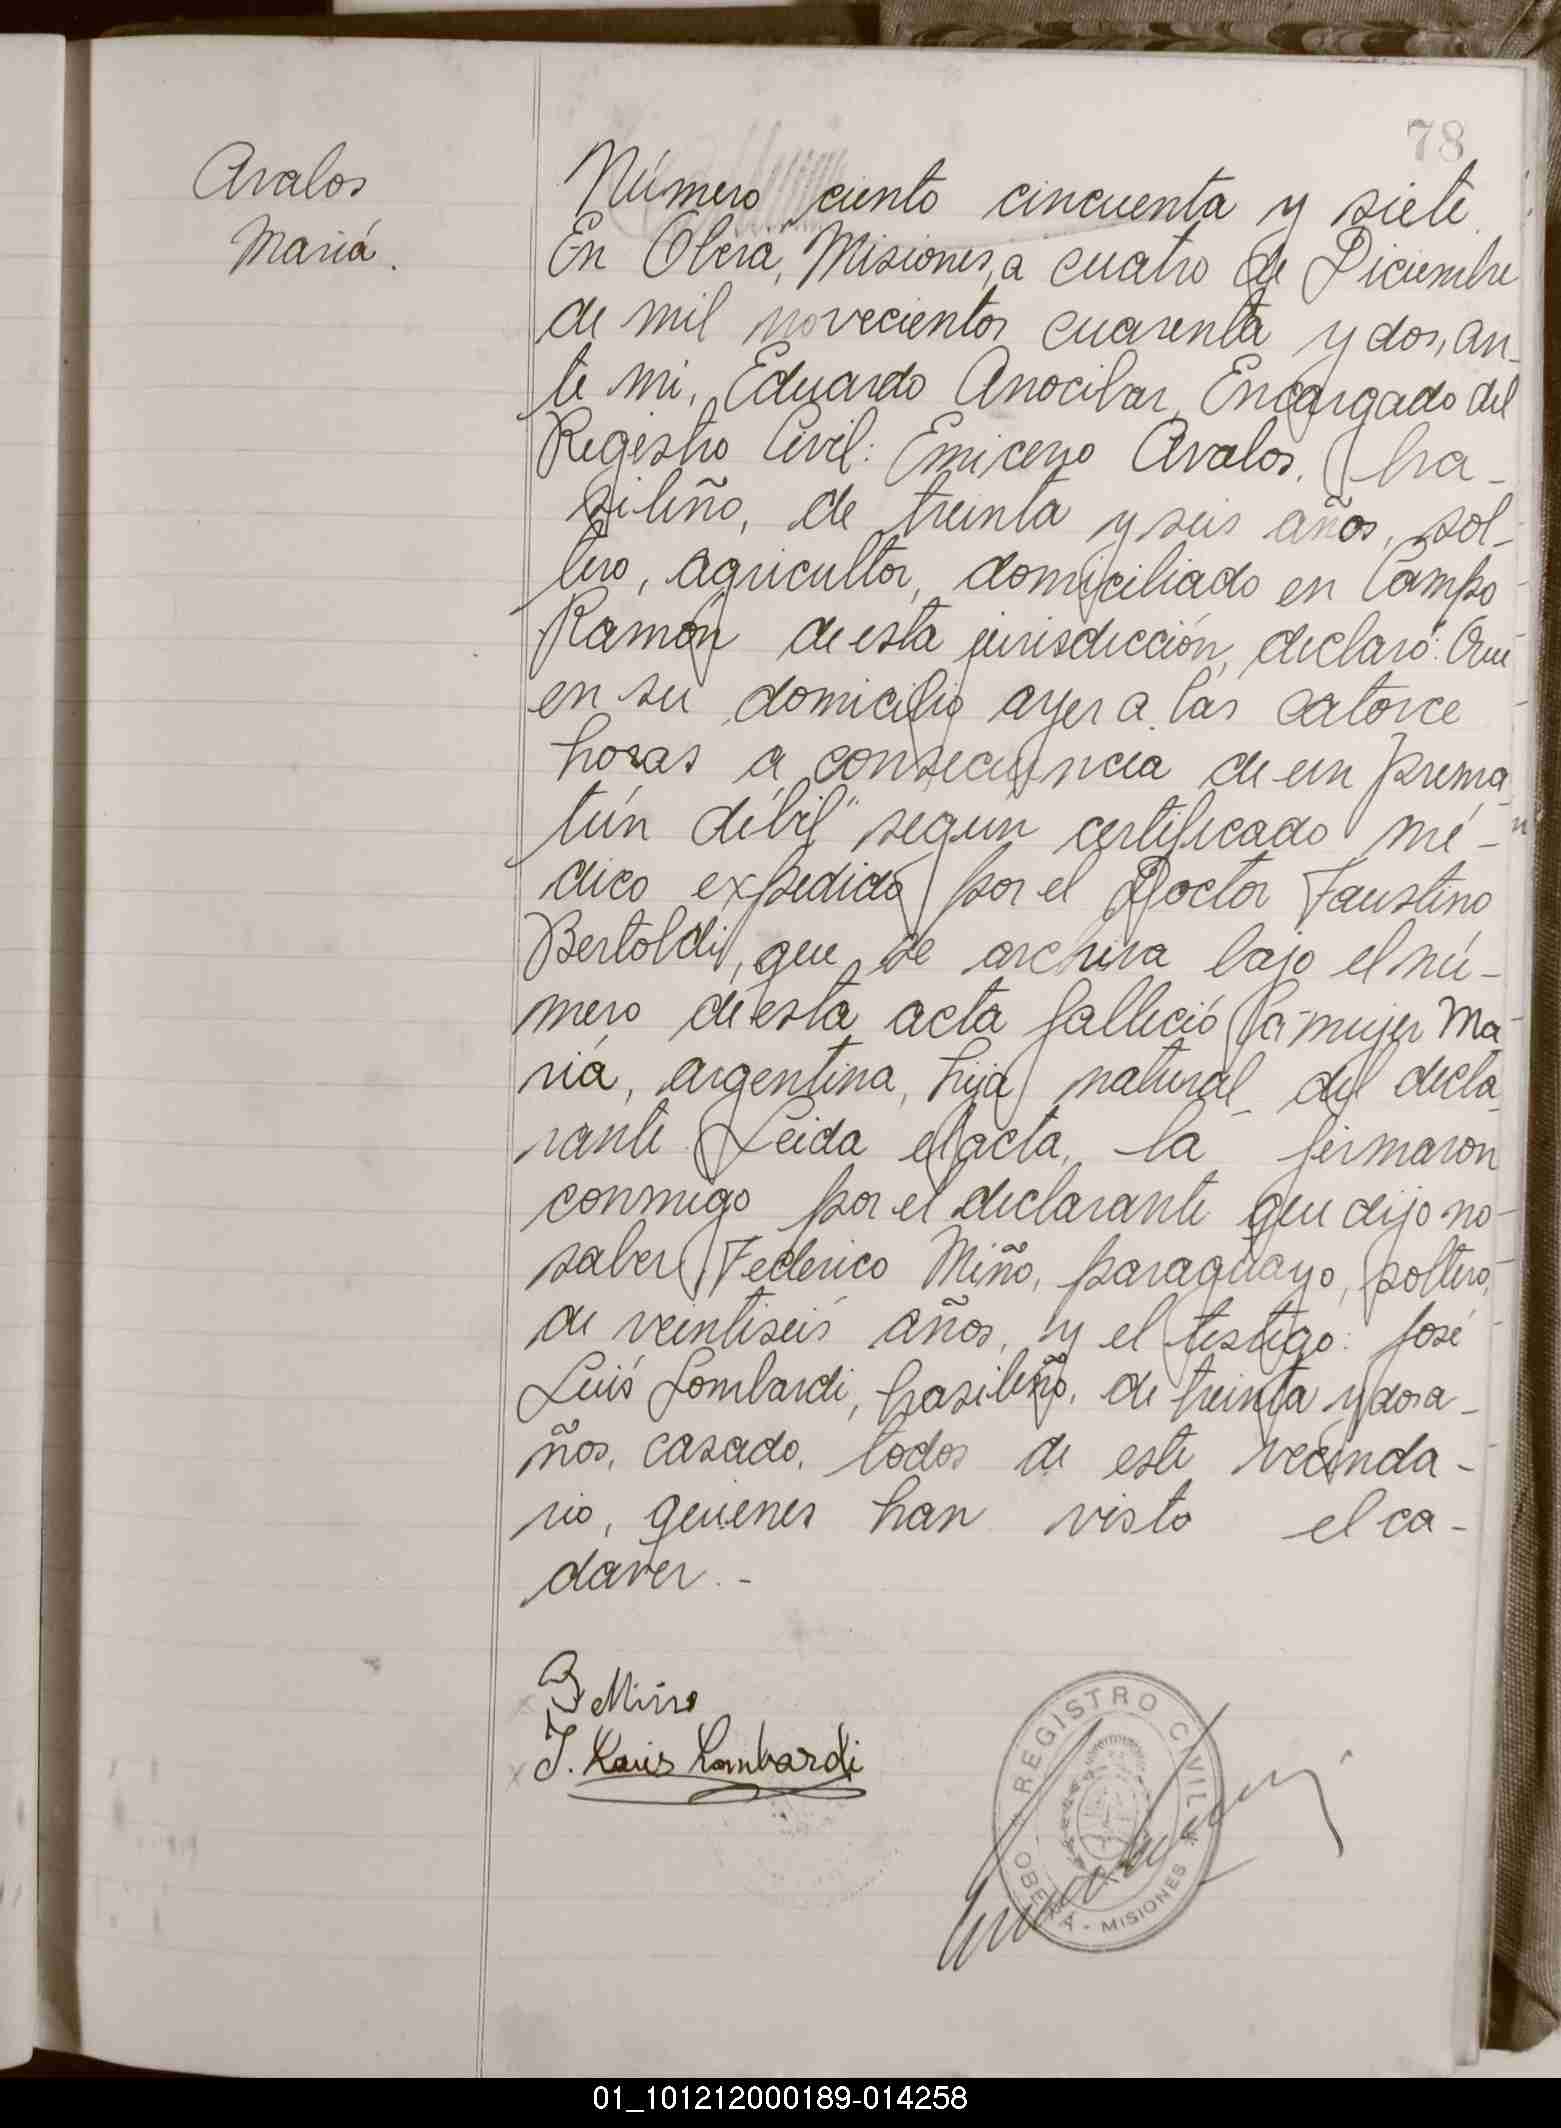 78
Avalos
Mariá.
Número ciento cincuenta y siete.
En Oberá, Misiones, a cuatro de Diciembre
de mil novecientos cuarenta y dos, an-
te mi, Eduardo Anocibar, Encargado del
Registro Civil: Emiceno Avalos, bra-
sileño, de treinta y seis años, sol-
tero, agricultor, domiciliado en Campo
Ramón de esta jurisdicción, declaró: Que
en su domicilio ayer a las catorce
horas a consecuencia de un "prema-
tún débil" según certificado mé-
dico expedido por el Doctor Faustino
Bertoldi, que se archiva bajo el nú-
mero de esta acta falleció la mujer Ma-
riá, argentina, hija natural del decla-
rante. Leida el acta, la firmaron
conmigo por el declarante que dijo no
saber, Federico Miño, paraguayo, soltero,
de veintiseis años, y el testigo: José
Luis Lombardi, brasileño, de treinta y dos a-
ños, casado, todos de este vecinda-
rio, quienes han visto el ca-
daver.-
F Miño
J. Luis Lombardi
REGISTRO CIVIL
OBERÁ - MISIONES
01_101212000189-014258